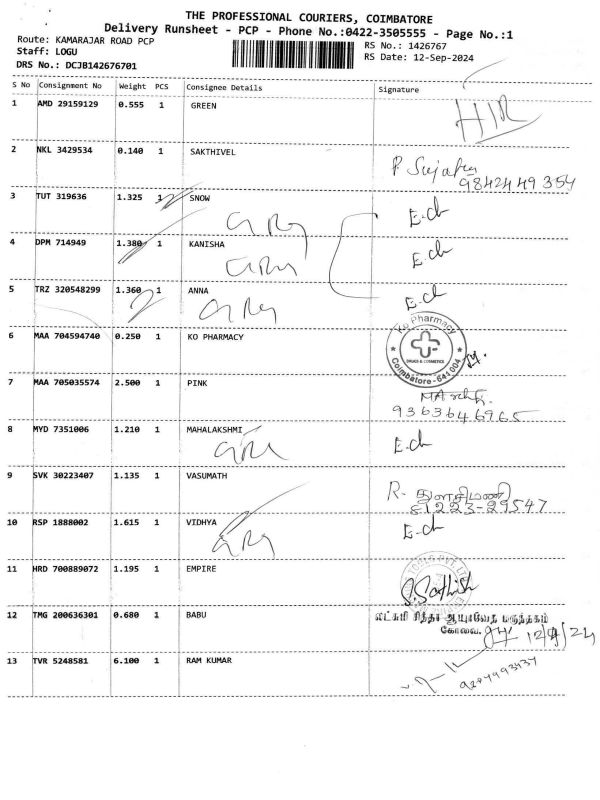 THE PROFESSIONAL COURIERS, COIMBATORE
Delivery Runsheet - PCP - Phone No.:0422-3505555 - Page No.:1
Route: KAMARAJAR ROAD PCP
Staff: LOGU
DRS No.: DCJB142676701
RS No.: 1426767
RS Date: 12-Sep-2024
S No Consignment No Weight PCS Consignee Details Signature
1 AMD 29159129 0.555 1 GREEN
2 NKL 3429534 0.140 1 SAKTHIVEL
P. Sujatha
9842449354
3 TUT 319636 1.325 1 SNOW E-ch
4 DPM 714949 1.380 1 KANISHA E-ch
5 TRZ 320548299 1.360 1 ANNA E-ch
6 MAA 704594740 0.250 1 KO PHARMACY
Ko Pharmacy
DRUGS & COSMETICS
Coimbatore-641004
7 MAA 705035574 2.500 1 PINK
9363646965
8 MYD 7351006 1.210 1 MAHALAKSHMI E-ch
9 SVK 30223407 1.135 1 VASUMATH
R. துளசிமணி
81223-29547
10 RSP 1888002 1.615 1 VIDHYA E-ch
11 HRD 700889072 1.195 1 EMPIRE S.Sathish
12 TMG 200636301 0.680 1 BABU
லட்சுமி சித்தா ஆயுர்வேத மருந்தகம்
கோவை. 12/9/24
13 TVR 5248581 6.100 1 RAM KUMAR